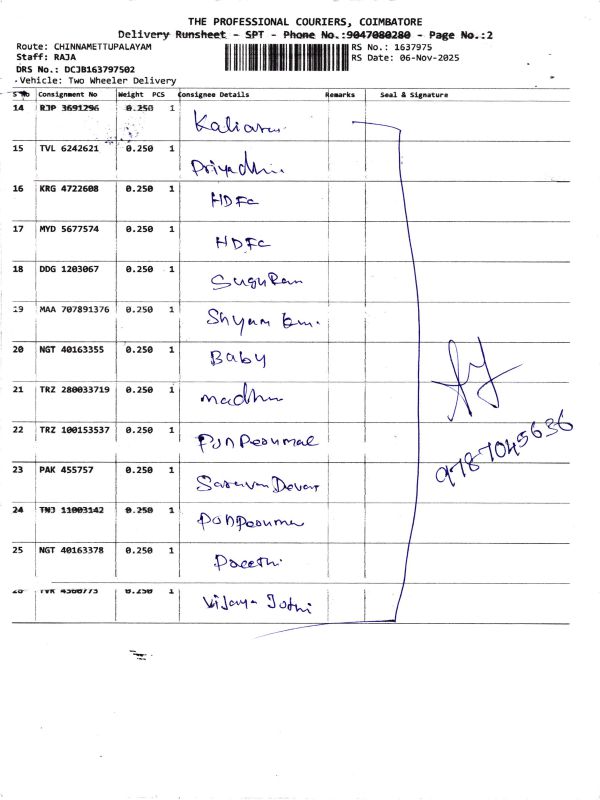 THE PROFESSIONAL COURIERS, COIMBATORE
Delivery Runsheet - SPT - Phone No.:9047080280 - Page No.:2
Route: CHINNAMETTUPALAYAM
RS No.: 1637975
Staff: RAJA
RS Date: 06-Nov-2025
DRS No.: DCJB163797502
Vehicle: Two Wheeler Delivery
S No Consignment No Weight PCS Consignee Details Remarks Seal & Signature
14 RJP 3691296 0.250 1
15 TVL 6242621 0.250 1
16 KRG 4722608 0.250 1 HDFC
17 MYD 5677574 0.250 1 HDFC
18 DDG 1203067 0.250 1 SuguRam
19 MAA 707891376 0.250 1 Shyam
20 NGT 40163355 0.250 1 Baby
21 TRZ 280033719 0.250 1 madhu
22 TRZ 100153537 0.250 1 PonPerumal
9787045636
23 PAK 455757 0.250 1
24 TNJ 11003142 0.250 1
25 NGT 40163378 0.250 1
26 TVR 4560773 0.250 1 Vijaya Jothi